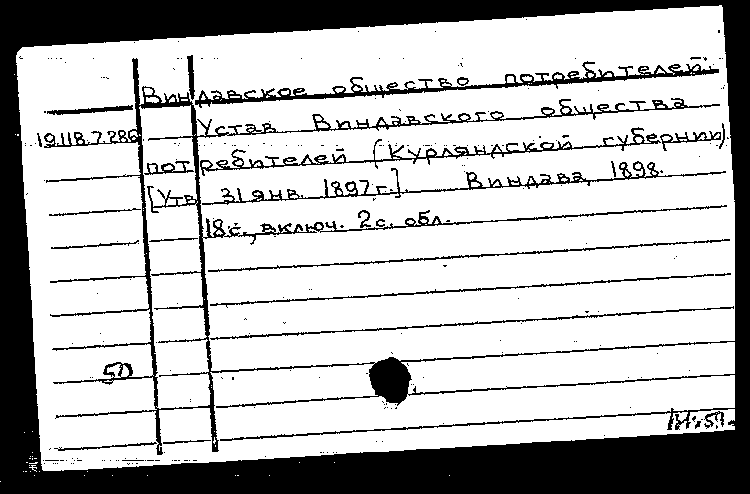 Виндавское общество потребителей.
19.118.7.286 Устав Виндавского общества
потребителей (Курляндской губернии)
[Утв. 31 янв. 1897 г.]. Виндава, 1898.
18 с., включ. 2 с. обл.
50